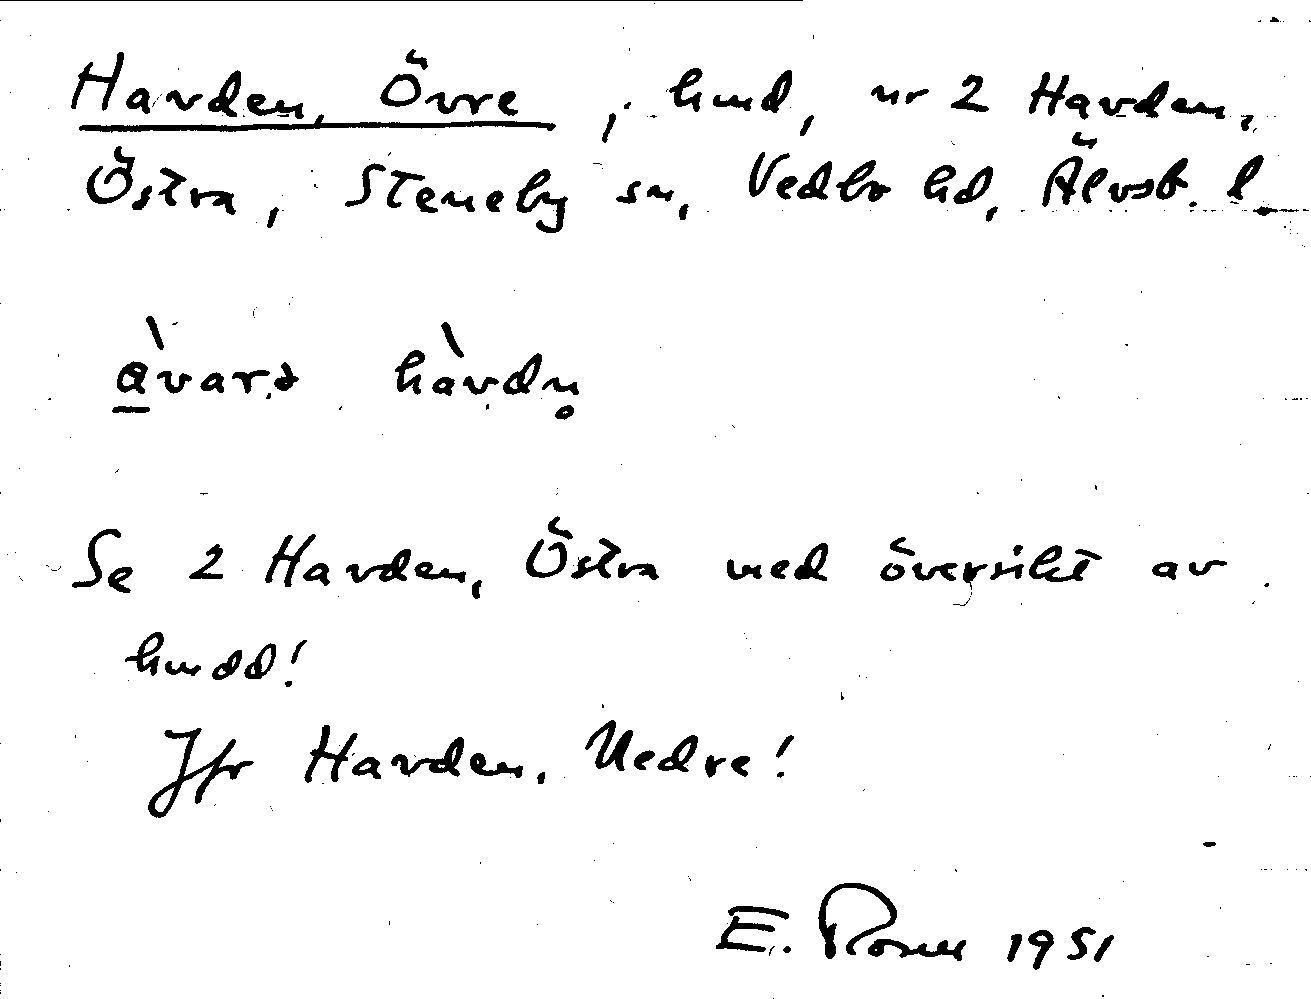 Havden, Övre, hmd, ur 2 Havden,
Östra, Steneby sn, Vedbo hd, Älvsb. l.
hàvdn̥
Se 2 Havden, Östra med översikt av
hmdd!
Jfr Havden, Nedre!
E. Rosell 1951